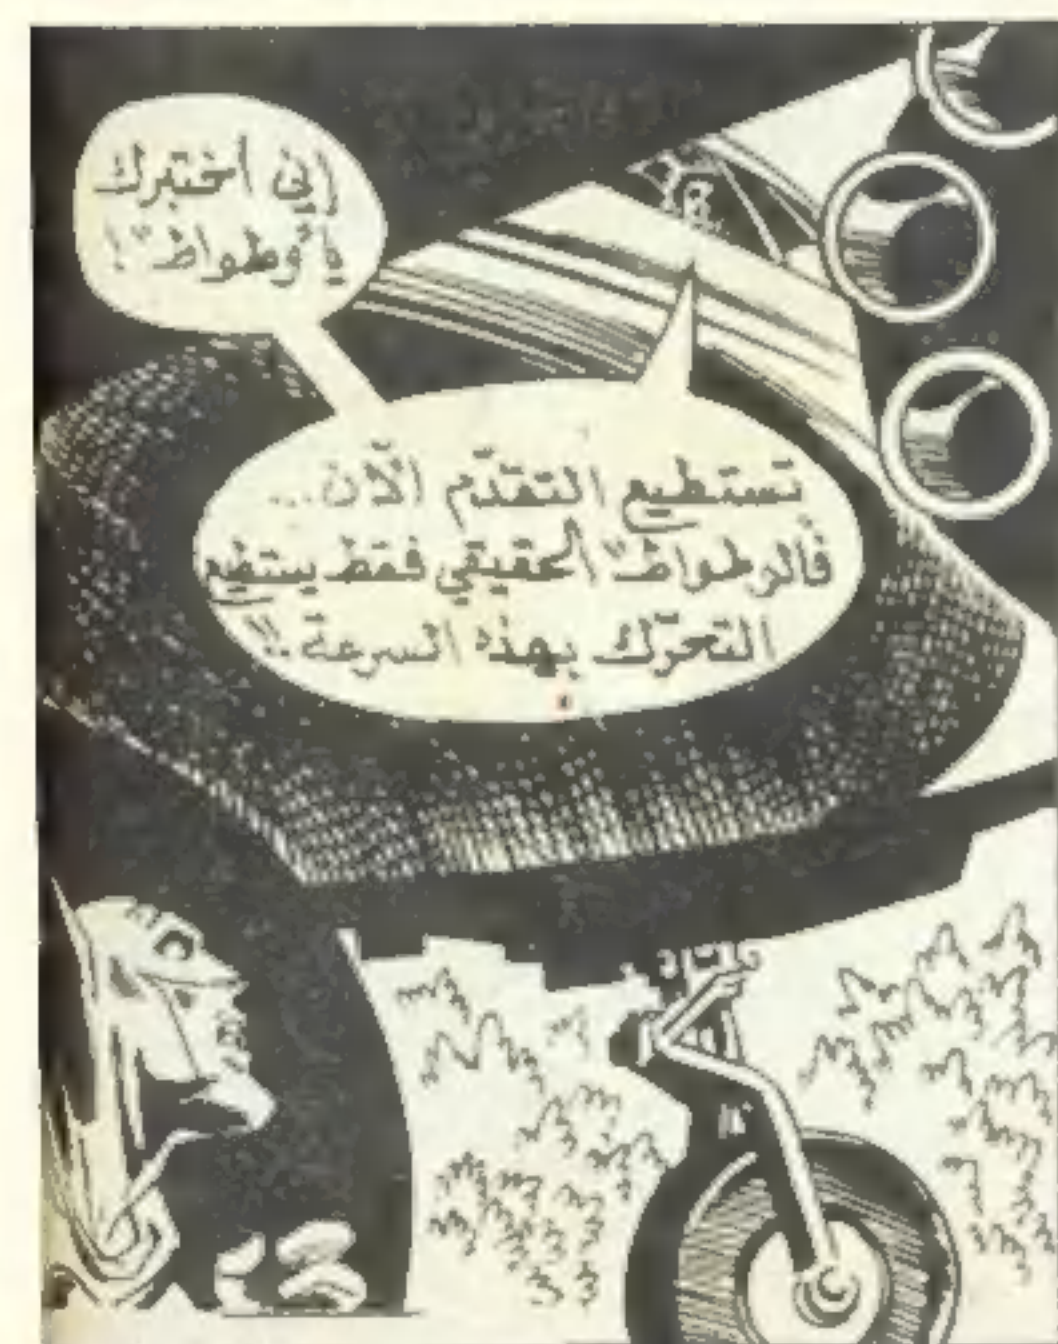 إني أختبرك
يا "وطواط"!
تستطيع التقدّم الآن...
فالوطواط" الحقيقي فقط يستطيع
التحرّك بهذه السرعة!!